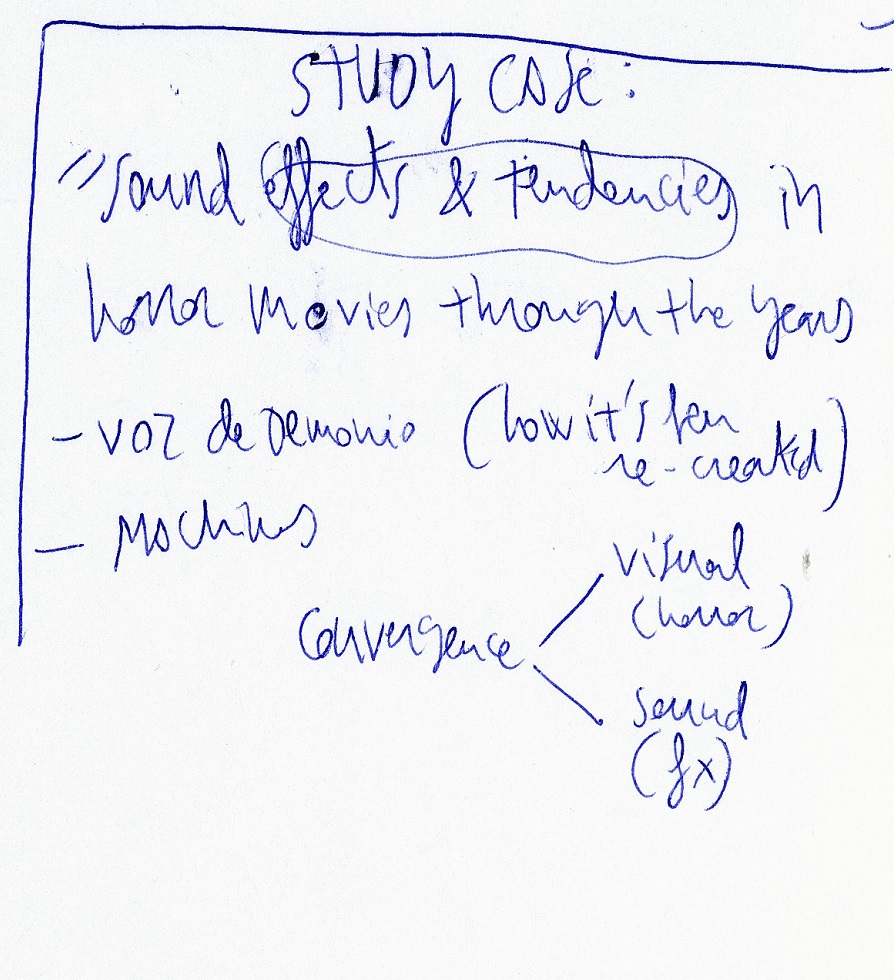 STUDY CASE:
"Sound effects & tendencies in
horror movies through the years
- voz de Demonio (how it's been
re-created)
- Machines
Convergence
visual
(horror)
sound
(fx)